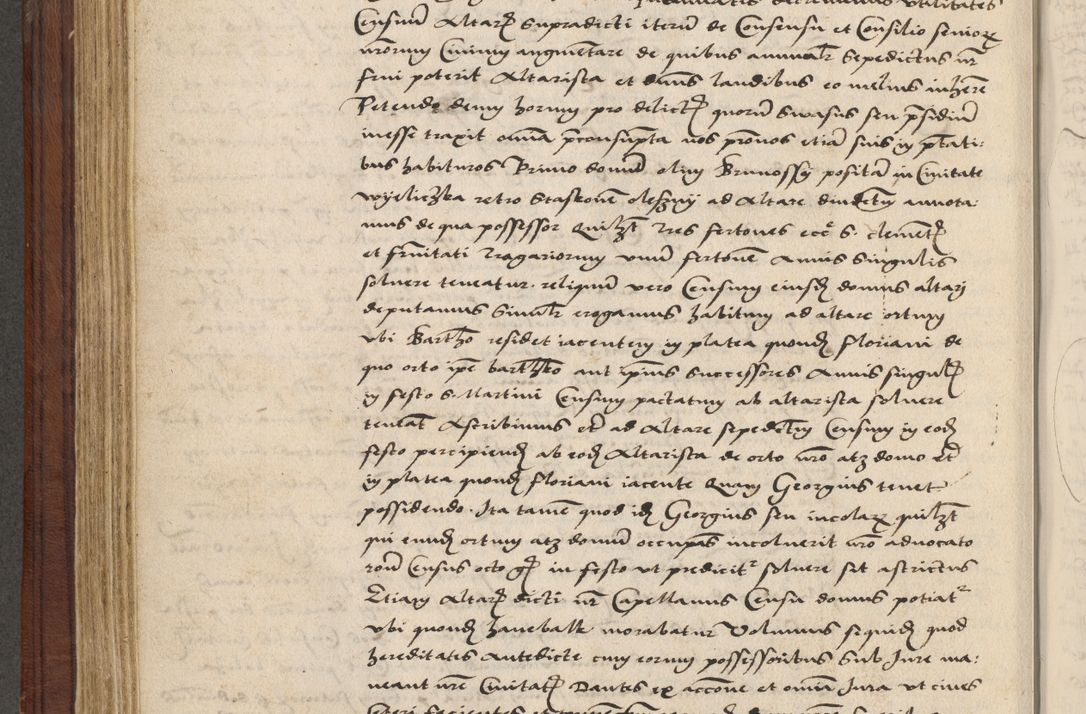 utilitates
Censum Altaris supradicti iterum de Consensu et Consilio senioru
nrorum Civium augmentare de quibus annualr sepedictus nr
frui poterit Altarista et divis laudibus eo melius inherere
Petendo demu horum pro delictis quorum suasus seu presidium
inesse traxit omnia preconsumpta nos pronos etiam suis in ptati:
bus habituros Primo domum olim Brunossy positam in Civitate
Wyeliczka retro Staskonem olesznij ad Altare duxdem annota
mus de qua possessor quilzt tres fertones ecce S. clementis
et frnitati Tragariorum unum fertonem Annis singulis
solvere teneatur. reliquum vero Censum eiusdem domus altari
deputamus Simulr erogamus habitum ad altare ortum
Ubi Bartho residet iacentem in platea quondam floriani de
quo orto ipse barthko aut ipsius successores Annis singulis
in festo S. Martini Censum pactatum ab altarista solvere
teneat Ascribimus etc ad Altare sepedictum Censum in eodem
festo percipiendum ab eodem Altarista de orto nro atz domo etc
in platea quondam floriani iacente Quam Georgius tenet
possidendo. Ita tamen quod idem Georgius seu incolarum quilzt
qui eundem ortum atz domum occupans incoluerit nro advocato
rom Census octo gr in festo ut predicitr solvere sit astrictus
Etiam Altaris dicti nr Capellanus Censu domus potiatr
Ubi quondam hanebalk morabatur Volumus sequidem quod
hereditates Antedicte cum eorum possessoribus Sub Jure ma:
neant nre Civitatis Dantes ex accione et omnia Jura ut cives